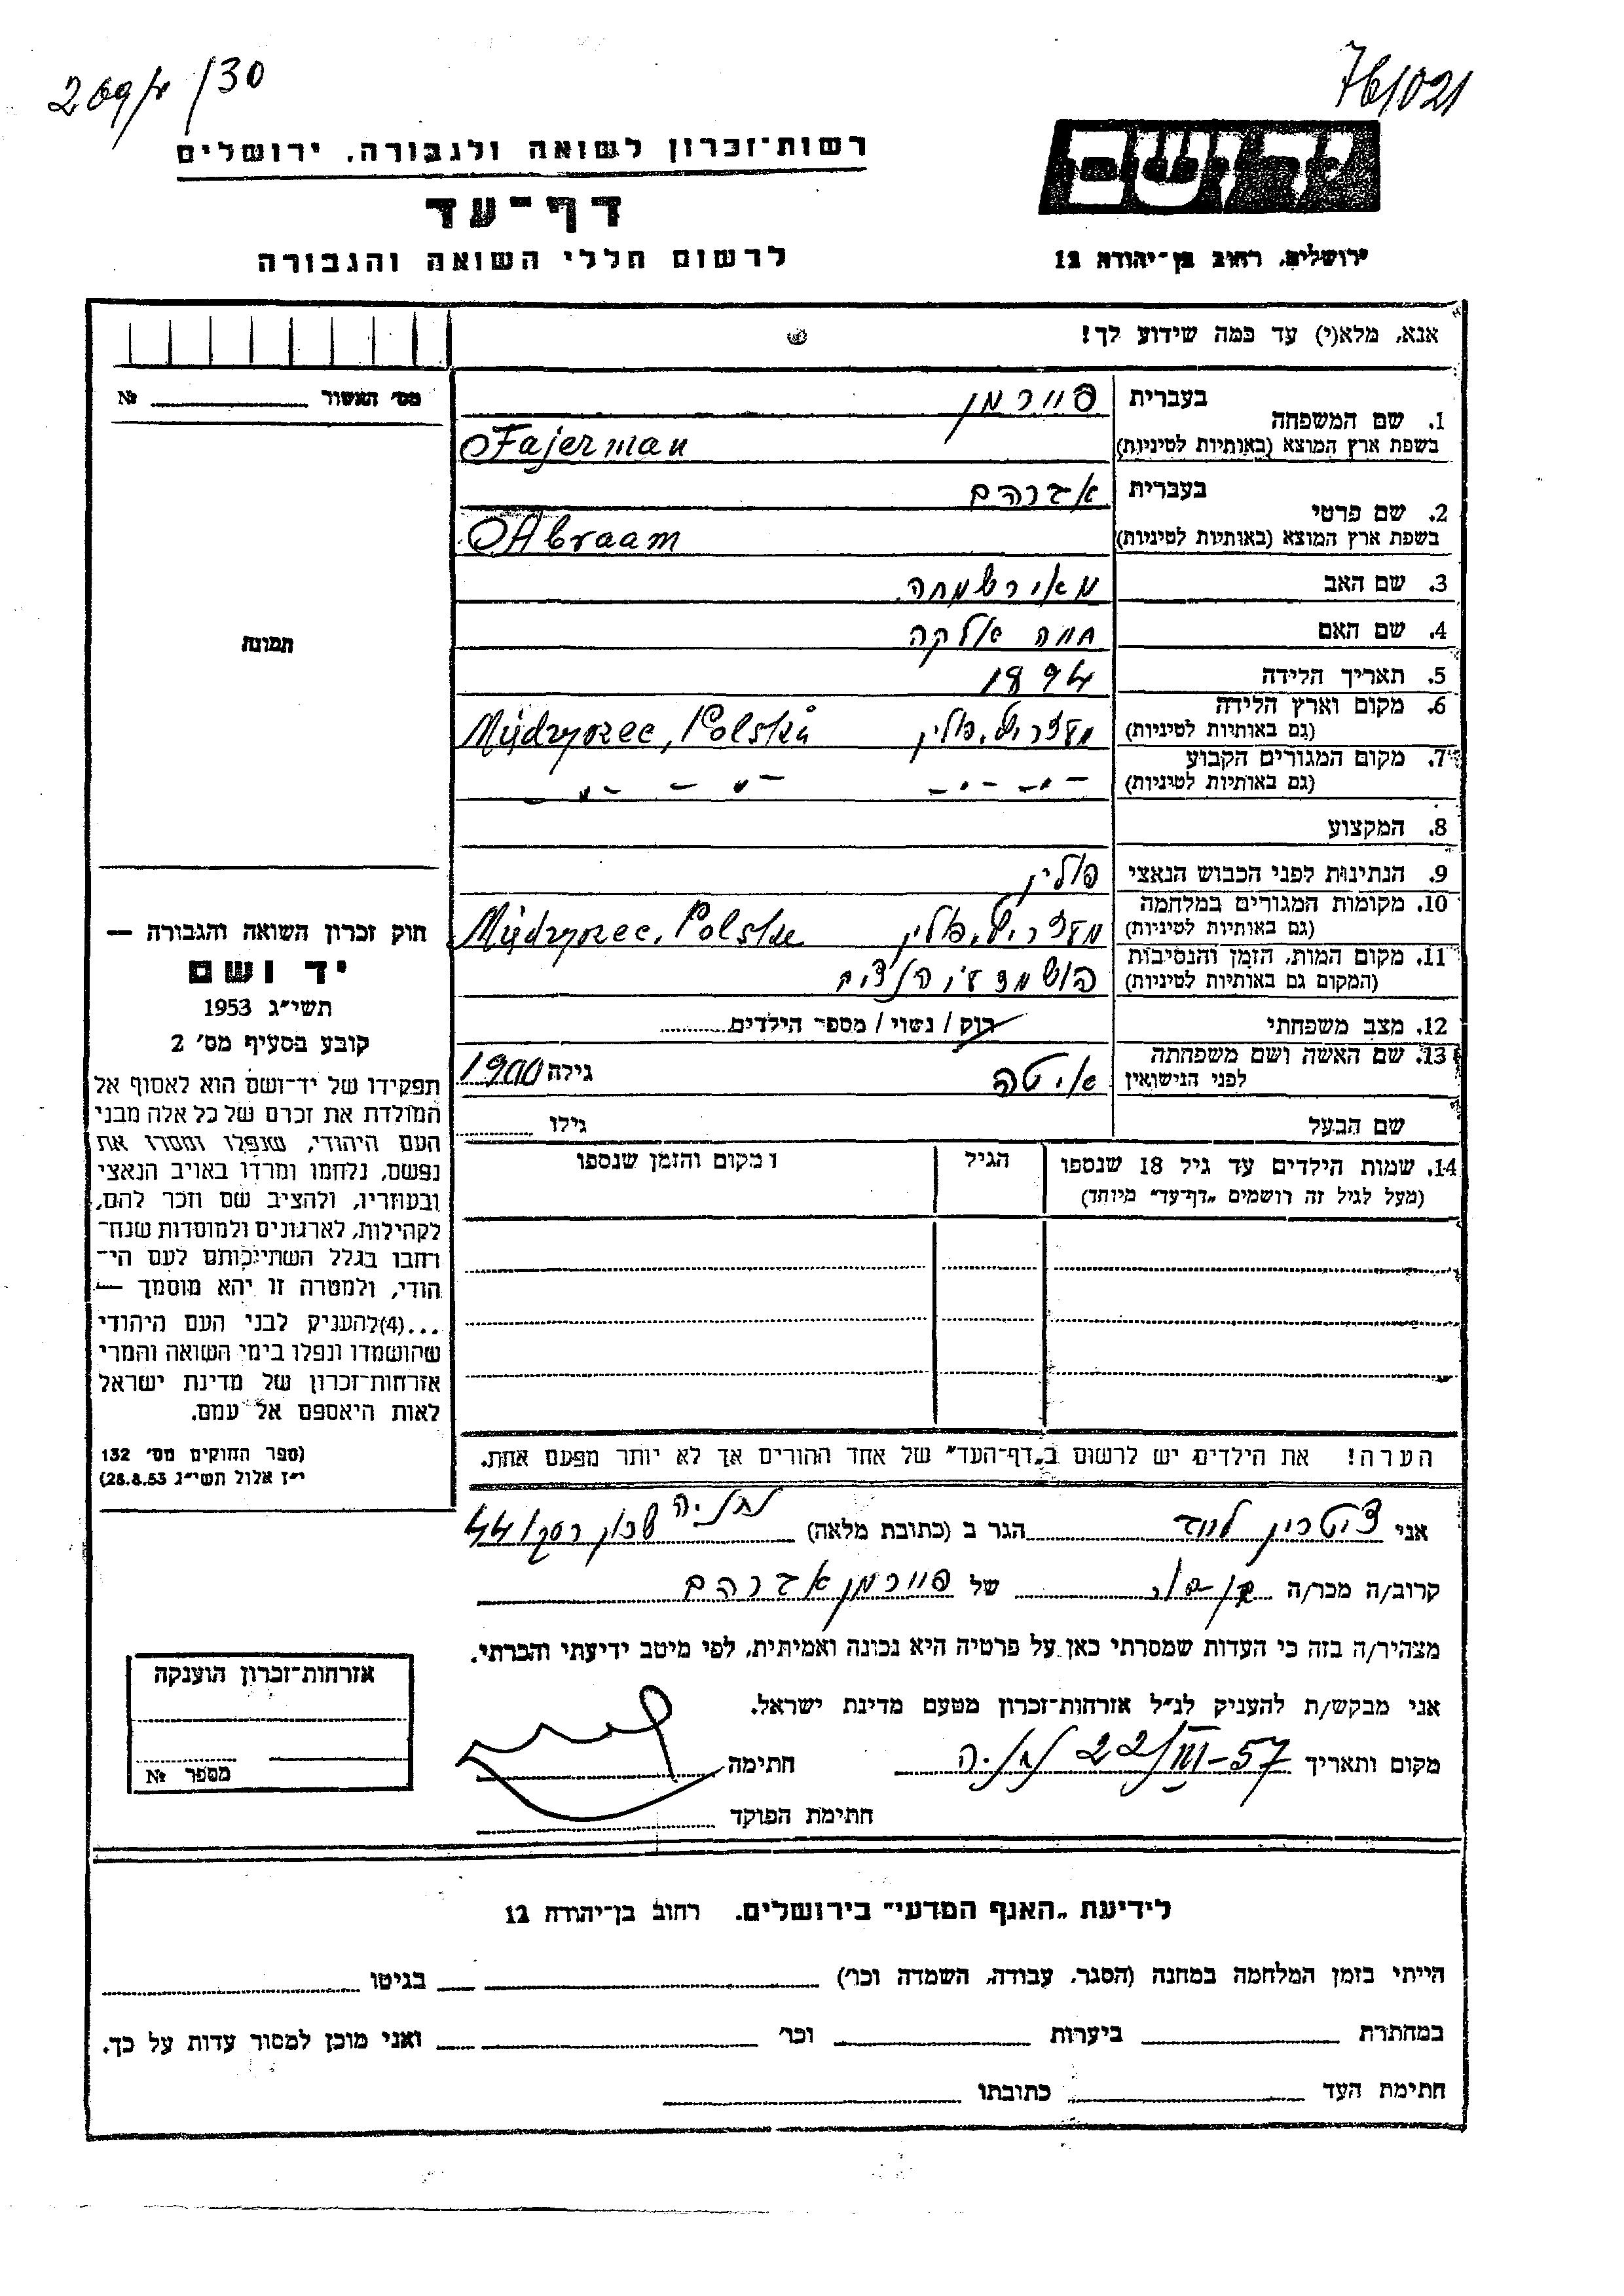 269/ /30
76/021
רשות־זכרון לשואה ולגבורה, ירושלים
יד ושם
דף־עד
לרשום חללי השואה והגבורה
ירושלים, רחוב בן־יהודה 12
אנא, מלא(י) עד כמה שידוע לך!
מס׳ האשור № 
1. שם המשפחה
בעברית פיירמן
בשפת ארץ המוצא (באותיות לטיניות) Fajerman
2. שם פרטי
בעברית אברהם
בשפת ארץ המוצא (באותיות לטיניות) Abraam
3. שם האב מאיר שמחה
4. שם האם חוה אלקה
5. תאריך הלידה 1894
6. מקום וארץ הלידה
(גם באותיות לטיניות) מזריץ, פולין Międzyrzec, Polska
7. מקום המגורים הקבוע
(גם באותיות לטיניות) - " - " - - " - " -
8. המקצוע
9. הנתינות לפני הכבוש הנאצי פולין
10. מקומות המגורים במלחמה
(גם באותיות לטיניות) מזריץ, פולין Międzyrzec, Polska
11. מקום המות, הזמן והנסיבות
(המקום גם באותיות לטיניות) הושמד ע״י הנצים
12. מצב משפחתי רוק / נשוי / מספר הילדים
13. שם האשה ושם משפחתה
לפני הנישואין איטה גילה 1900
שם הבעל גילו
14. שמות הילדים עד גיל 18 שנספו
(מעל לגיל זה רושמים „דף־עד״ מיוחד)
הגיל
מקום והזמן שנספו
הערה! את הילדים יש לרשום ב„דף־העד״ של אחד ההורים אך לא יותר מפעם אחת.
תמונה
חוק זכרון השואה והגבורה —
יד ושם
תשי״ג 1953
קובע בסעיף מס׳ 2
תפקידו של יד־ושם הוא לאסוף אל
המולדת את זכרם של כל אלה מבני
העם היהודי, שנפלו ומסרו את
נפשם, נלחמו ומרדו באויב הנאצי
ובעוזריו, ולהציב שם וזכר להם,
לקהילות, לארגונים ולמוסדות שנח־
רחבו בגלל השתייכותם לעם הי־
הודי, ולמטרה זו יהא מוסמך —
...(4)להעניק לבני העם היהודי
שהושמדו ונפלו בימי השואה והמרי
אזרחות־זכרון של מדינת ישראל
לאות היאספם אל עמם.
(ספר החוקים מס׳ 132
י״ז אלול תשי״ג 28.8.53)
אני ציטרין הגר ב (כתובת מלאה) נתניה שכון 44/
קרוב/ה מכר/ה של פיירמן אברהם
מצהיר/ה בזה כי העדות שמסרתי כאן על פרטיה היא נכונה ואמיתית, לפי מיטב ידיעתי והכרתי.
אני מבקש/ת להעניק לנ״ל אזרחות־זכרון מטעם מדינת ישראל.
מקום ותאריך נתניה 22/III-57 חתימה
חתימת הפוקד
אזרחות־זכרון הוענקה
מספר №
לידיעת „האגף המדעי״ בירושלים. רחוב בן־יהודה 12
הייתי בזמן המלחמה במחנה (הסגר, עבודה, השמדה וכו׳) בגיטו
במחתרת ביערות וכו׳ ואני מוכן למסור עדות על כך.
חתימת העד כתובתו